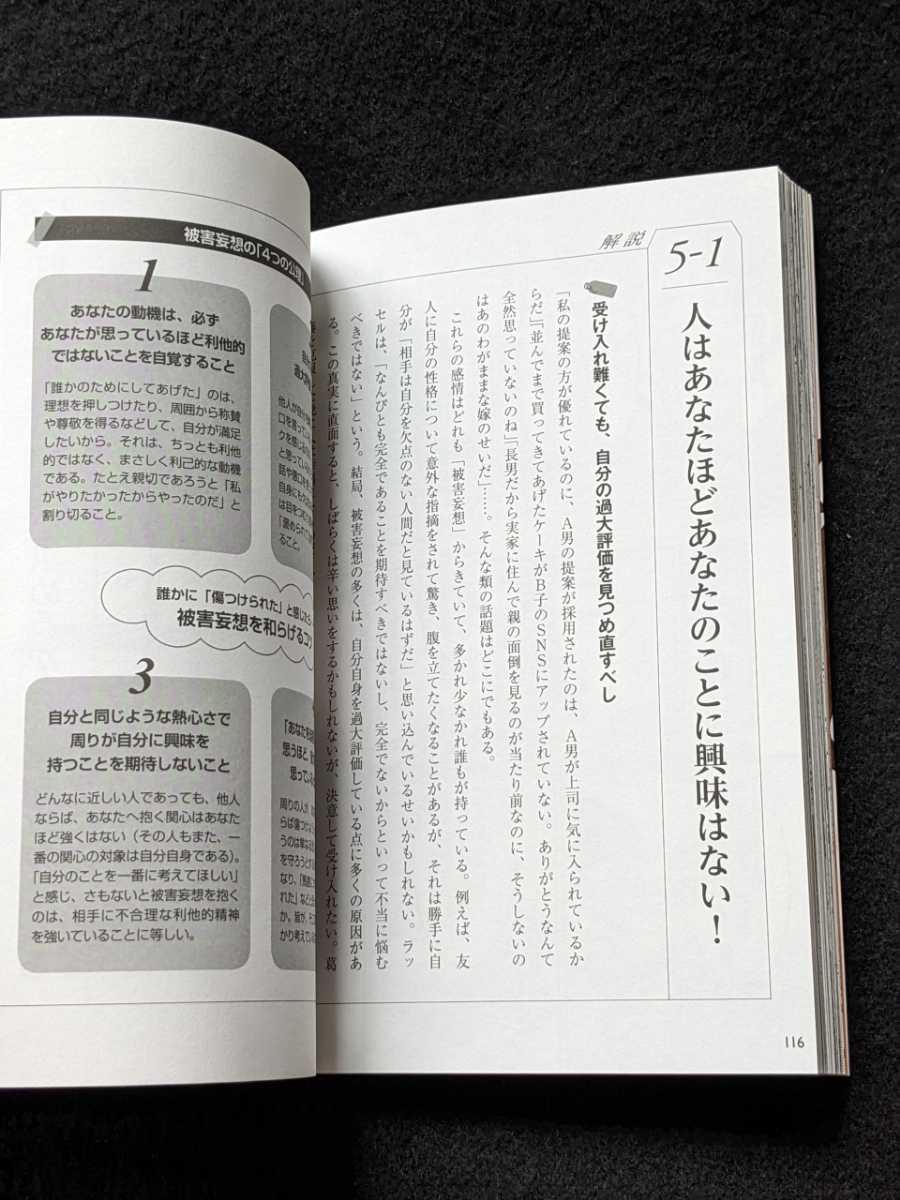 解説
5-1
人はあなたほどあなたのことに興味はない！
受け入れ難くても、自分の過大評価を見つめ直すべし
「私の提案の方が優れているのに、A男の提案が採用されたのは、A男が上司に気に入られているか
らだ」「並んでまで買ってきてあげたケーキがB子のSNSにアップされていない。ありがとうなんて
全然思っていないのね」「長男だから実家に住んで親の面倒を見るのが当たり前なのに、そうしないの
はあのわがままな嫁のせいだ」……。そんな類の話題はどこにでもある。
これらの感情はどれも「被害妄想」からきていて、多かれ少なかれ誰もが持っている。例えば、友
人に自分の性格について意外な指摘をされて驚き、腹を立てたくなることがあるが、それは勝手に自
分が「相手は自分を欠点のない人間だと見ているはずだ」と思い込んでいるせいかもしれない。ラッ
セルは、「なんぴとも完全であることを期待すべきではないし、完全でないからといって不当に悩む
べきではない」という。結局、被害妄想の多くは、自分自身を過大評価している点に多くの原因があ
る。この真実に直面すると、しばらくは辛い思いをするかもしれないが、決意して受け入れたい。葛
116
被害妄想の「4つの公理」
1
あなたの動機は、必ず
あなたが思っているほど利他的
ではないことを自覚すること
「誰かのためにしてあげた」のは、
理想を押しつけたり、周囲から称賛
や尊敬を得るなどして、自分が満足
したいから。それは、ちっとも利他
的ではなく、まさしく利己的な動機
である。たとえ親切であろうと「私
がやりたかったからやったのだ」と
割り切ること。
誰かに「傷つけられた」と感じたら
被害妄想を和らげるコツ
3
自分と同じような熱心さで
周りが自分に興味を
持つことを期待しないこと
どんなに近しい人であっても、他人
ならば、あなたへ抱く関心はあなた
ほど強くはない（その人もまた、一
番の関心の対象は自分自身である）。
「自分のことを一番に考えてほしい」
と感じ、さもないと被害妄想を抱く
のは、相手に不合理な利他的精神
を強いていることに等しい。